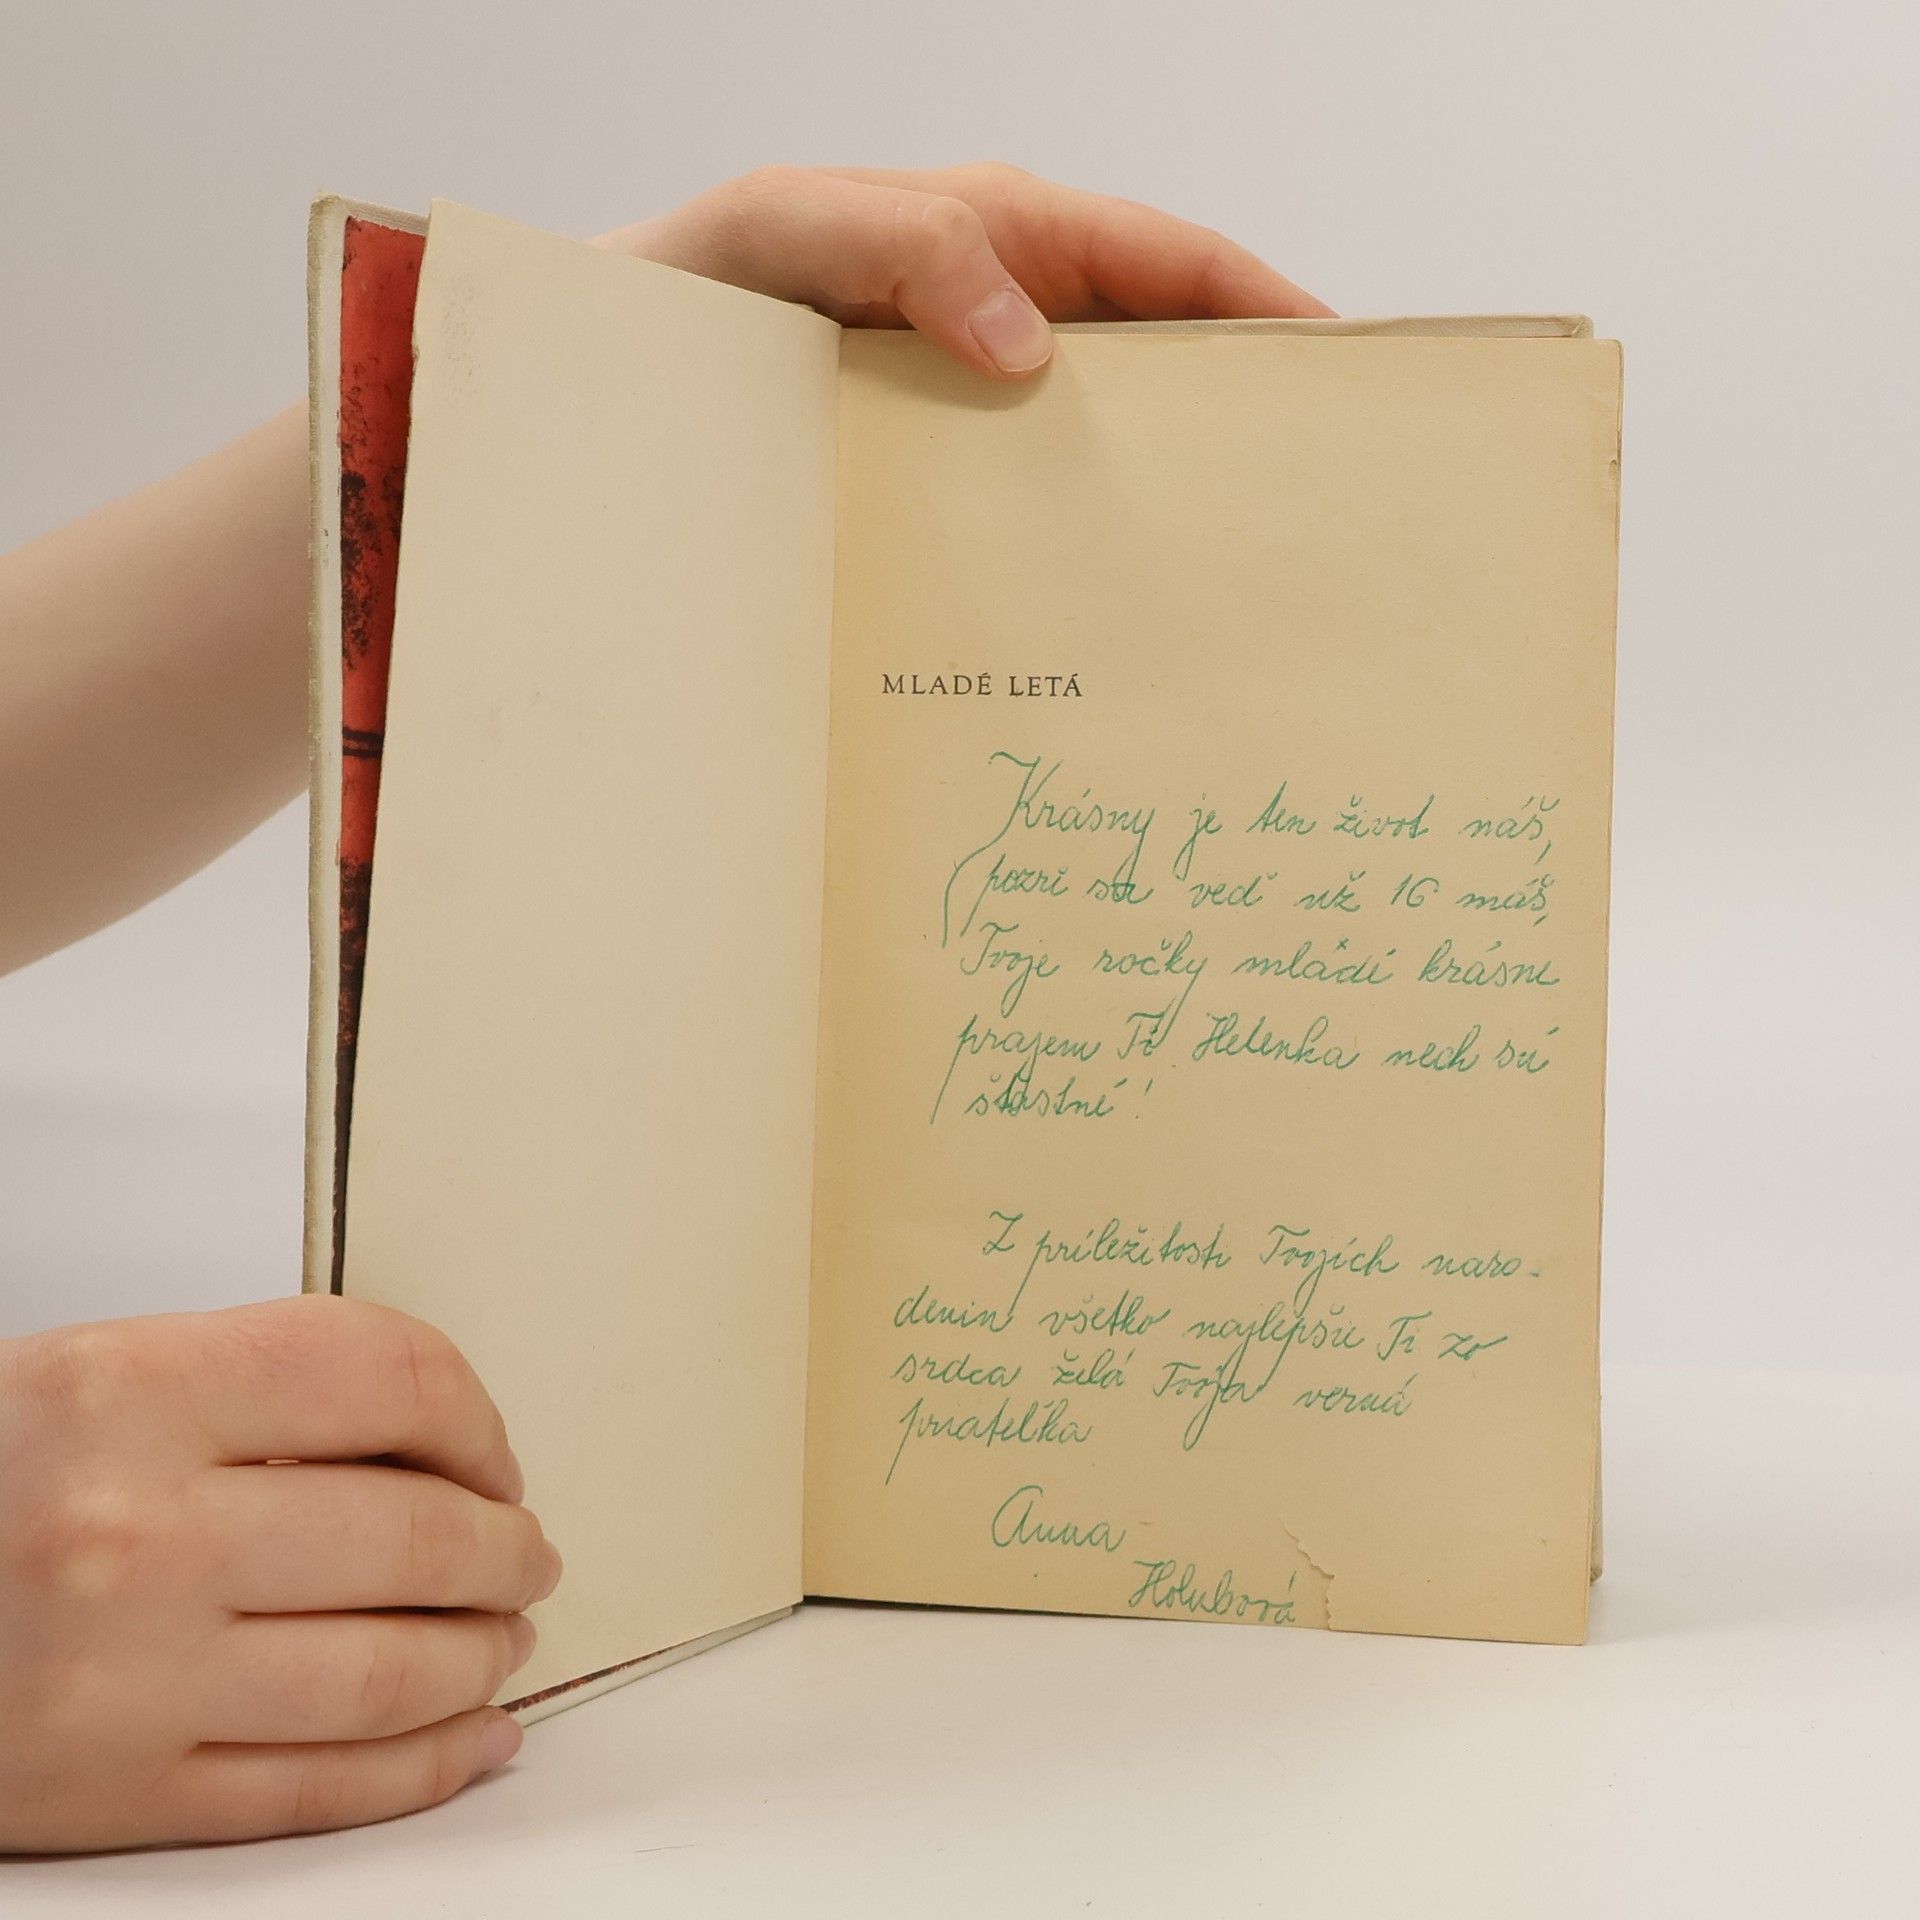 MLADÉ LETÁ
Krásny je ten život náš,
pozri sa veď už 16 máš,
Tvoje ročky mládí krásne
prajem Ti Helenka nech sú
šťastné!
Z príležitosti Tvojích naro-
denin všetko najlepšie Ti zo
srdca želá Tvoja verná
priateľka
Anna
Holubová